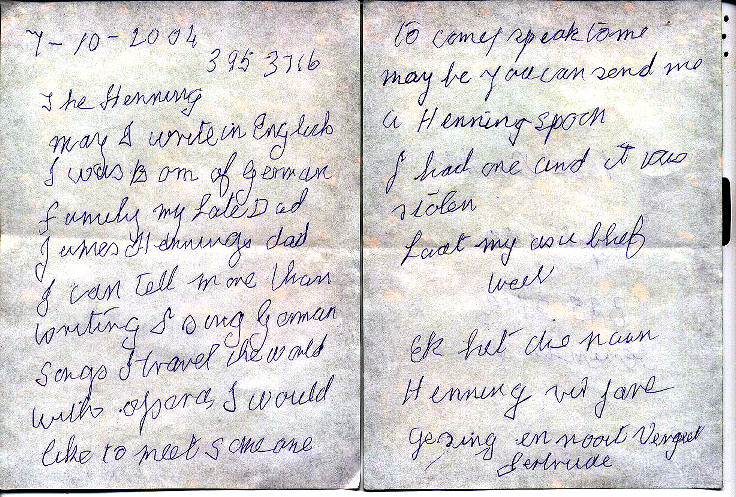 7-10-2004
395 3716
The Henning
may I write in English
I was Born of German
family my Late Dad
James Hennings dad
I can tell more than
writing I sang German
songs I travel the world
with operas I would
like to meet someone
to come speak to me
may be you can send me
a Henning spoon
I had one and it was
stolen
Laat my asu blief
weet
Ek het die naam
Henning vir jare
gesing en nooit Vergeet
Gertrude